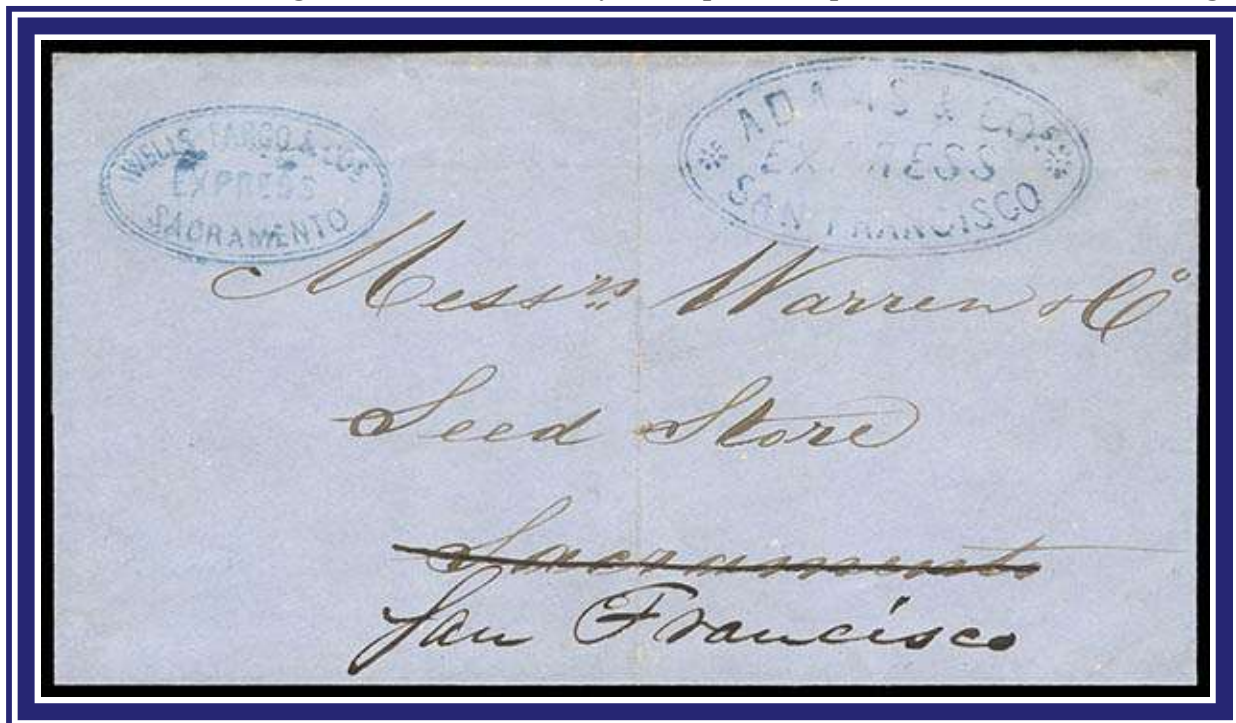 WELLS, FARGO & CO'S
EXPRESS
SACRAMENTO
ADAMS & CO'S
EXPRESS
SAN FRANCISCO
Messrs Warren & Co
Seed Store
Sacramento
San Francisco